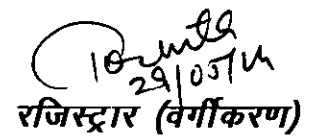 29/05/14
रजिस्ट्रार (वर्गीकरण)